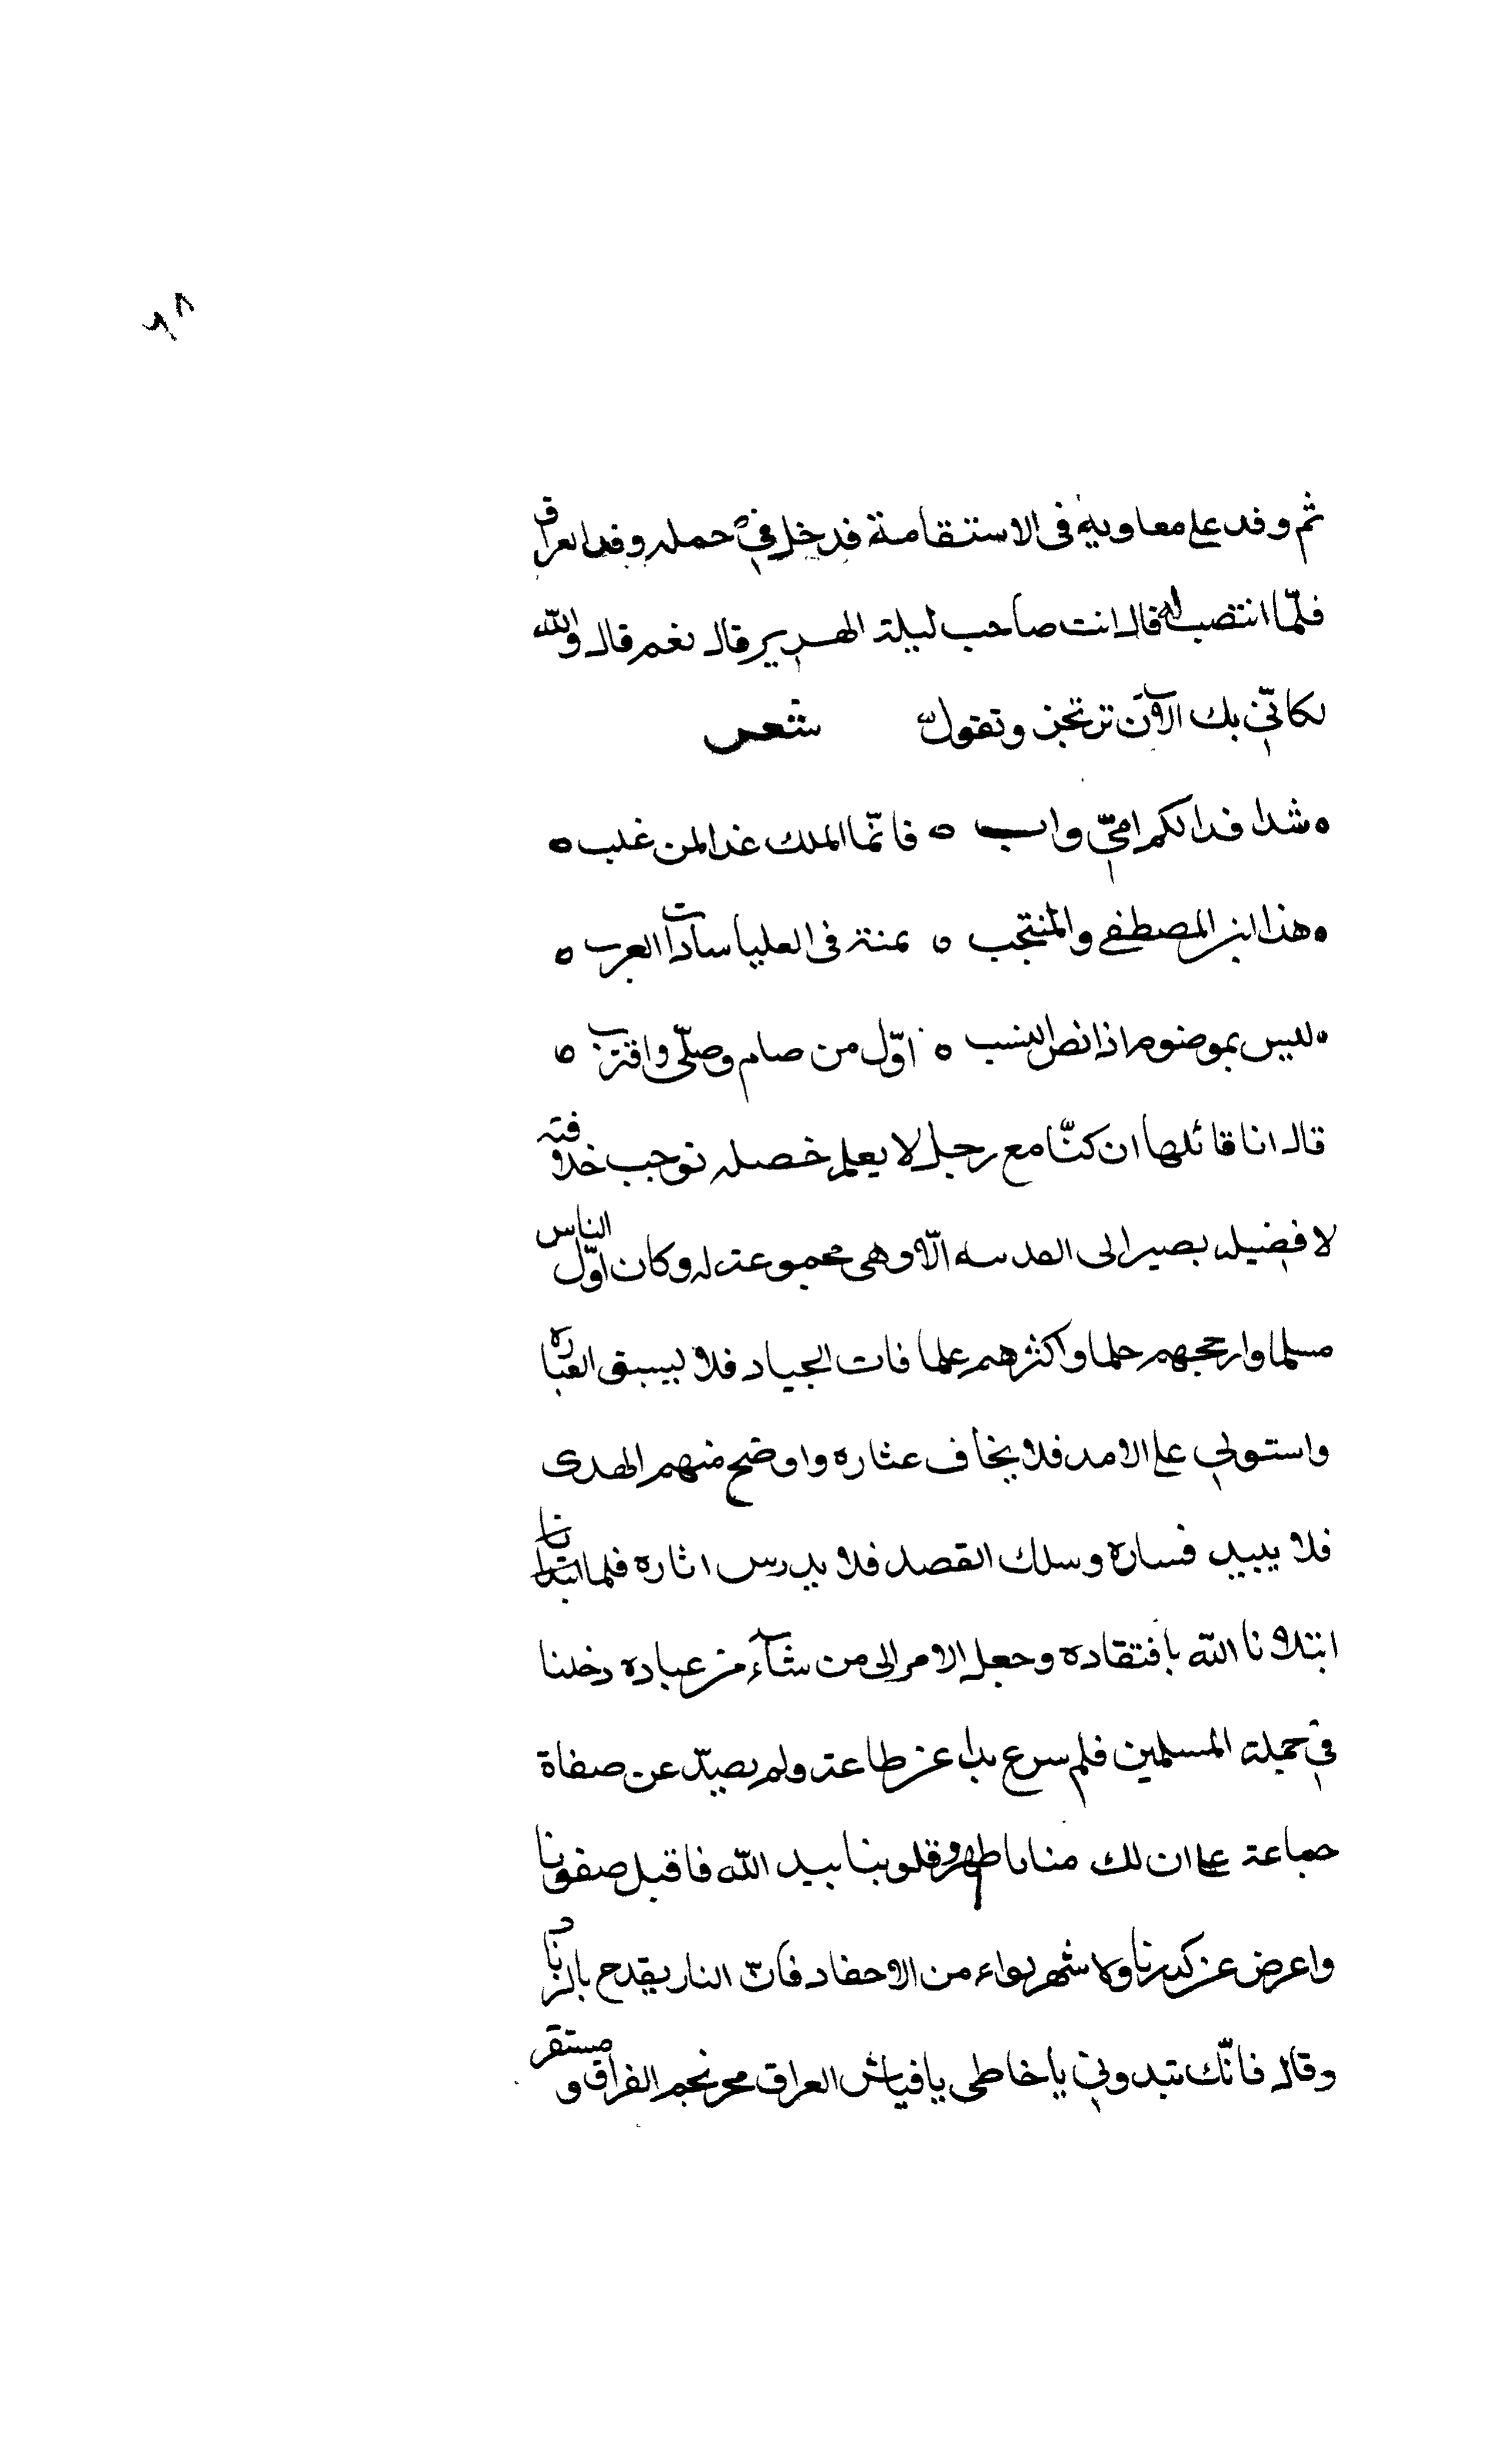 ٦٨
ثم وفد على معاوية فى الاستقامة فدخل في حمله وفد العراق
فلمّا انتصب له قال انت صاحب ليلة الهرير قال نعم قال والله
لكانّي بك الآن ترتجز وتقول شعر
شدا فدا لكم امّي واب ه فانّما الملك غدا لمن غلب ه
هذا ابن المصطفى والمنتجب ه نمنته فى العليا سادات العرب ه
ليس بموضوم اذا نص النسب ه اوّل من صام وصلّى واقترب ه
قال انا قائلها ان كنّا مع رجل لا يعلم خصله توجب خلافته
لا فضيله يصير الى الا وهى مجموعة له وكان اوّل الناس
مسلما وارجحهم حلما واكثرهم علما فات الجياد فلا يسبق الغباره
واستولي على الامد فلا يخاف عثاره واوضح منهم الهدى
فلا يبيد وسلك القصد فلا يدرس اثاره فلما
ابتلانا الله بافتقاده وجعل الامر الى من شآء من عباده دخلنا
في جملة المسلمين فلم سرع يدا عن طاعة ولم يصدّ عن صفاة
جماعة على ان لك منا ما ظهر وقلوبنا بيد الله فاقبل صفونا
واعرض عن كدرنا ولا من الاحقاد فانّ النار يقدح بالزناد
وقال فانّك تبدوني يا خاطى يا فياش العراق نجم الفراق و مستقر